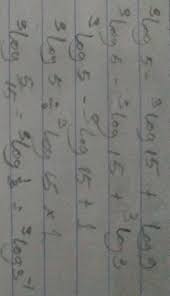 ³log 5 - ³log 15 + log
³log 5 - ³log 15 + ³log 3
³log 5 - ³log 15 + 1
³log 5 : ³log 15 × 1
³log 5/15 = ³log 1/3 = ³log 3⁻¹